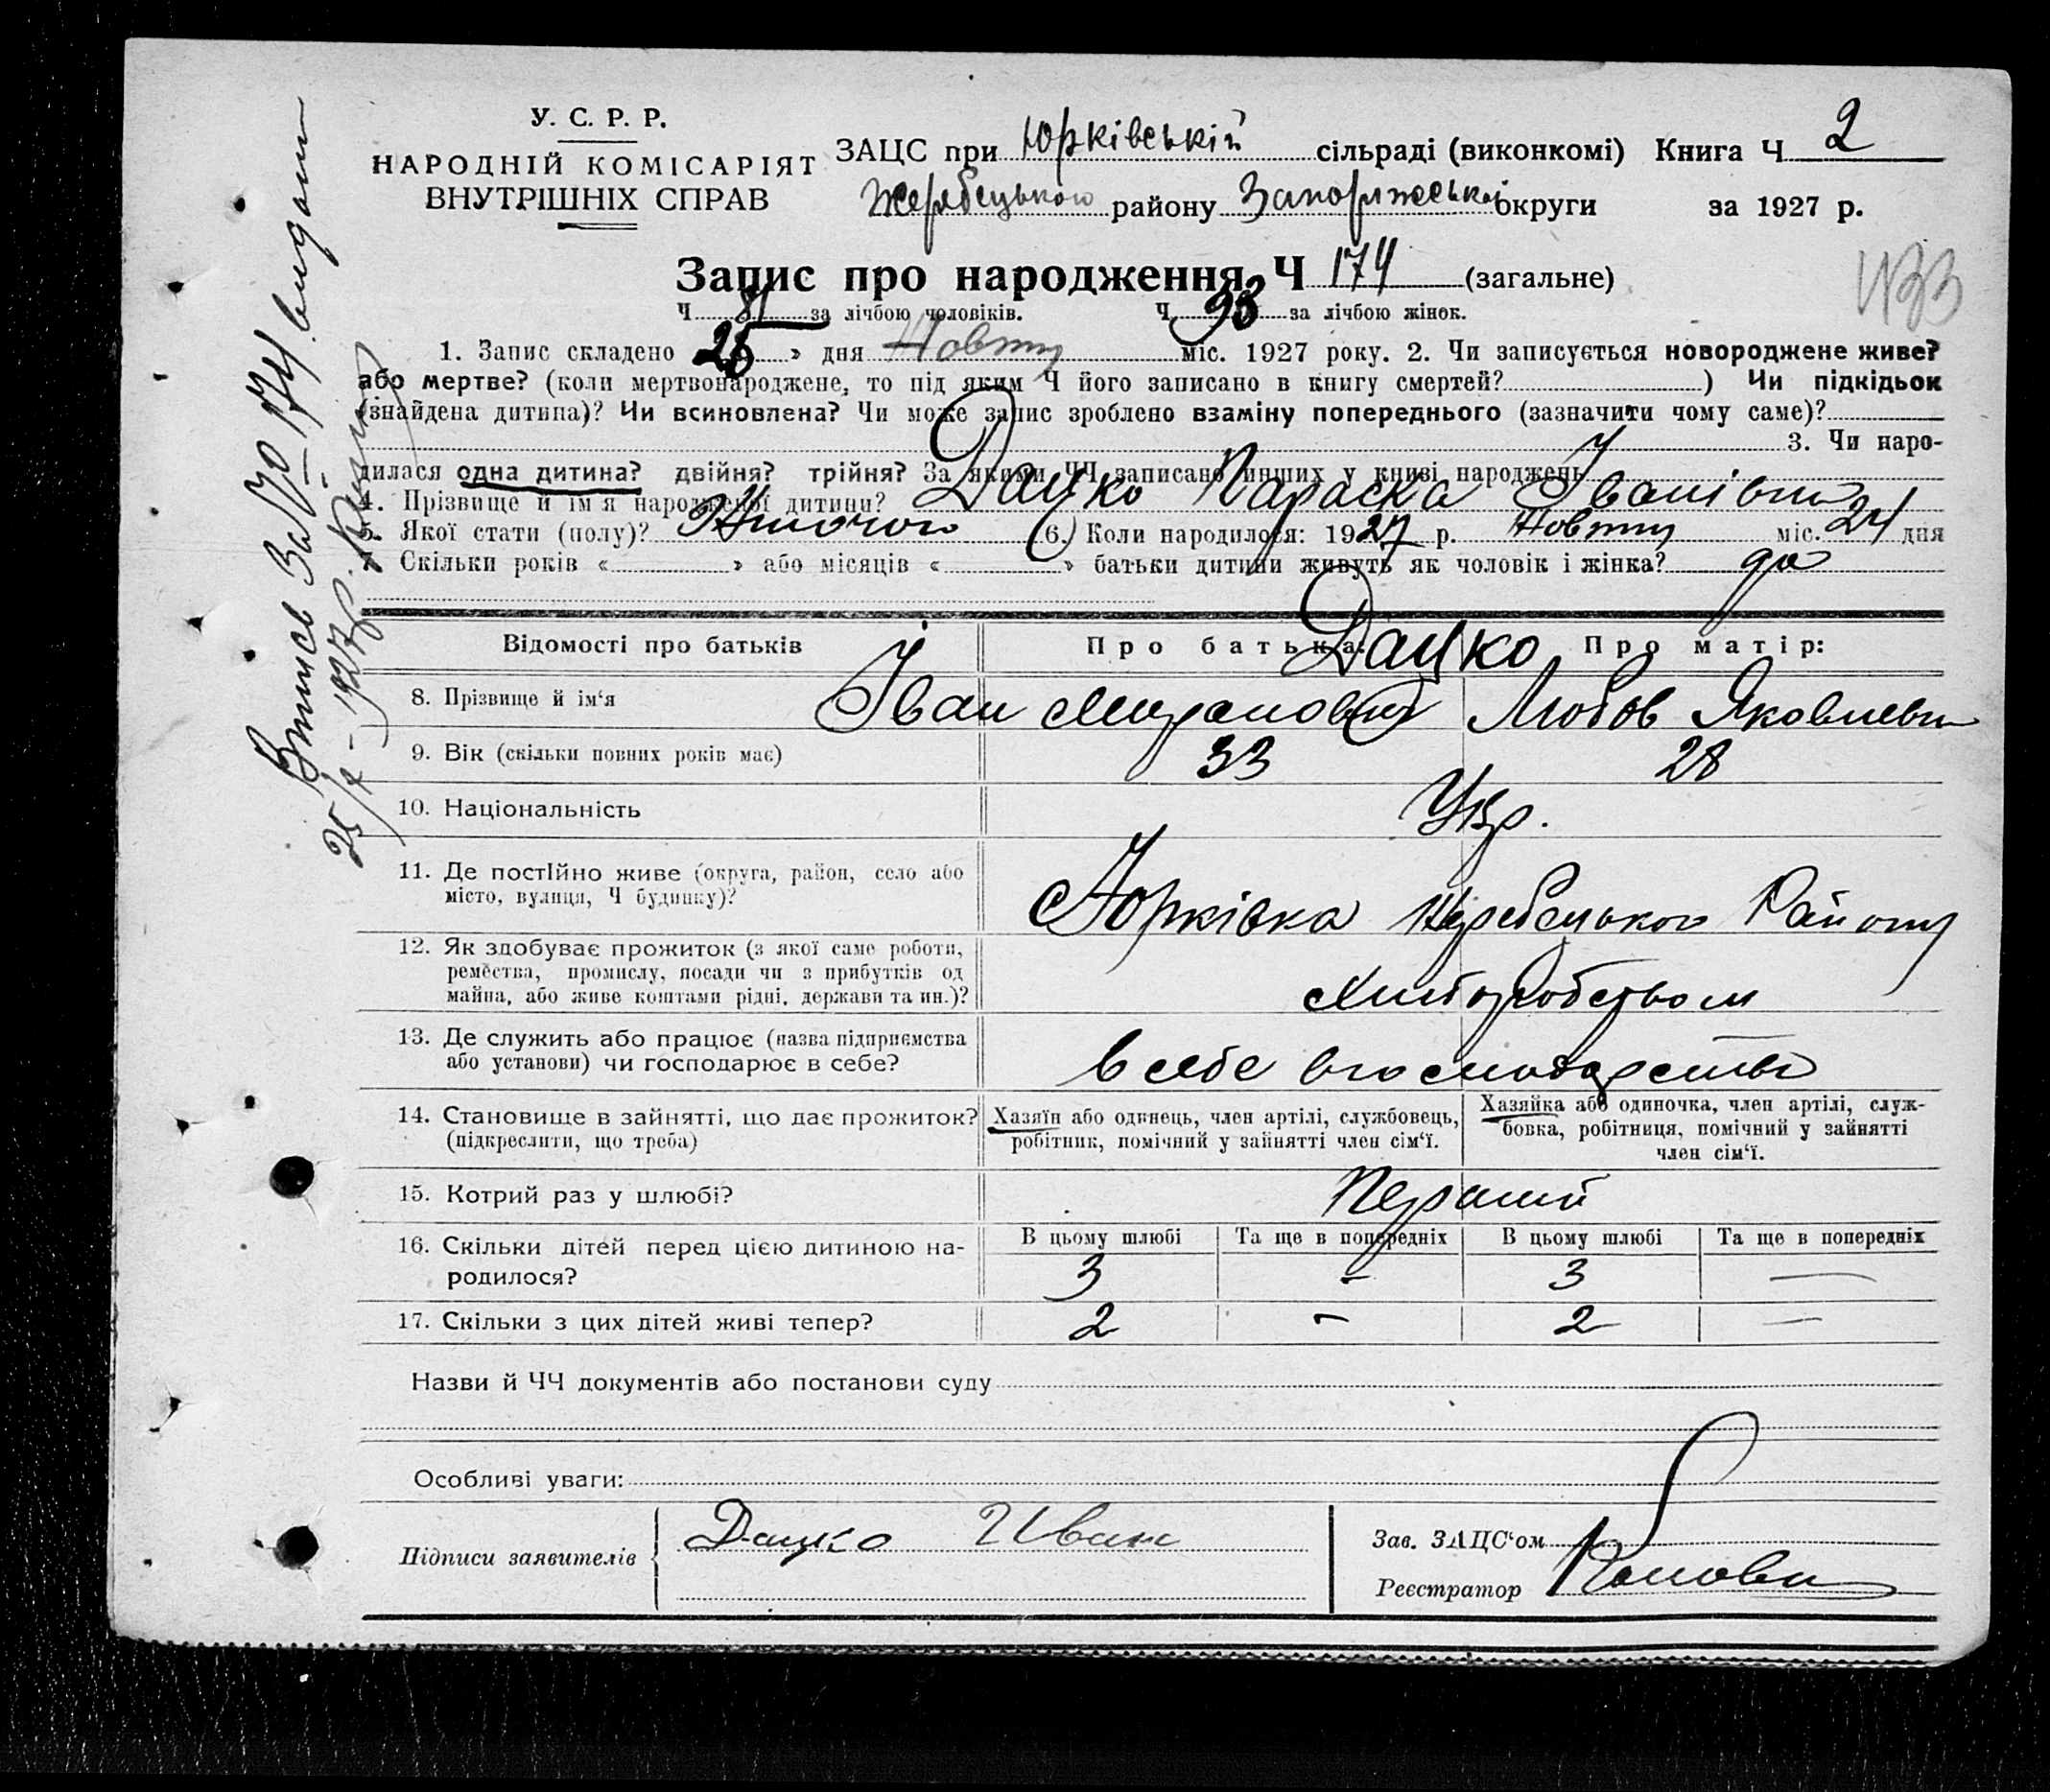 У. С. Р. Р.
НАРОДНІЙ КОМІСАРІЯТ
ВНУТРІШНІХ СПРАВ
ЗАЦС при Юрківській сільраді (виконкомі) Книга Ч 2
Жеребецького району Запорижської округи за 1927 р.
Запис про народження Ч 174 (загальне)
Ч 81 за лічбою чоловіків. Ч 93 за лічбою жінок.
1. Запис складено 25 » дня Жовтня міс. 1927 року. 2. Чи записується новороджене живе?
або мертве? (коли мертвонароджене, то під яким Ч його записано в книгу смертей? ) Чи підкідьок
(знайдена дитина)? Чи всиновлена? Чи може запис зроблено взаміну попереднього (зазначити чому саме)?
3. Чи наро-
дилася одна дитина? двійня? трійня? За якими ЧЧ записано инших у книзі народжень
4. Прізвище й ім'я народженої дитини? Дацко Параска Іванівна
5. Якої стати (полу)? Жіночого 6. Коли народилося: 1927 р. Жовтня міс. 24 дня
7. Скільки років « » або місяців « » батьки дитини живуть як чоловік і жінка? да
Відомості про батьків Про батька: Про матір:
Дацко
8. Прізвище й ім‘я Іван Любов Яковлевна
9. Вік (скільки повних років має) 33 28
10. Національність Укр.
11. Де постійно живе (округа, район, село або
місто, вулиця, Ч будинку)? Юрківка Жеребецького Району
12. Як здобуває прожиток (з якої саме роботи,
ремества, промислу, посади чи з прибутків од
майна, або живе коштами рідні, держави та ин.)? Хліборобством
13. Де служить або працює (назва підприємства
або установи) чи господарює в себе? в себе в господарстві
14. Становище в зайнятті, що дає прожиток?
(підкреслити, що треба)
Хазяїн або одинець, член артілі, службовець,
робітник, помічний у зайнятті член сім‘ї.
Хазяйка або одиночка, член артілі, служ-
бовка, робітниця, помічний у зайнятті
член сім‘ї.
15. Котрий раз у шлюбі? Перший
В цьому шлюбі Та ще в попередніх В цьому шлюбі Та ще в попередніх
16. Скільки дітей перед цією дитиною на-
родилося? 3 - 3 —
17. Скільки з цих дітей живі тепер? 2 - 2 —
Назви й ЧЧ документів або постанови суду
Особливі уваги:
Підписи заявителів Дацко Иван
Зав. ЗАЦС‘ом
Реєстратор
Випись За № 174 видани
25/X - 1927 р.